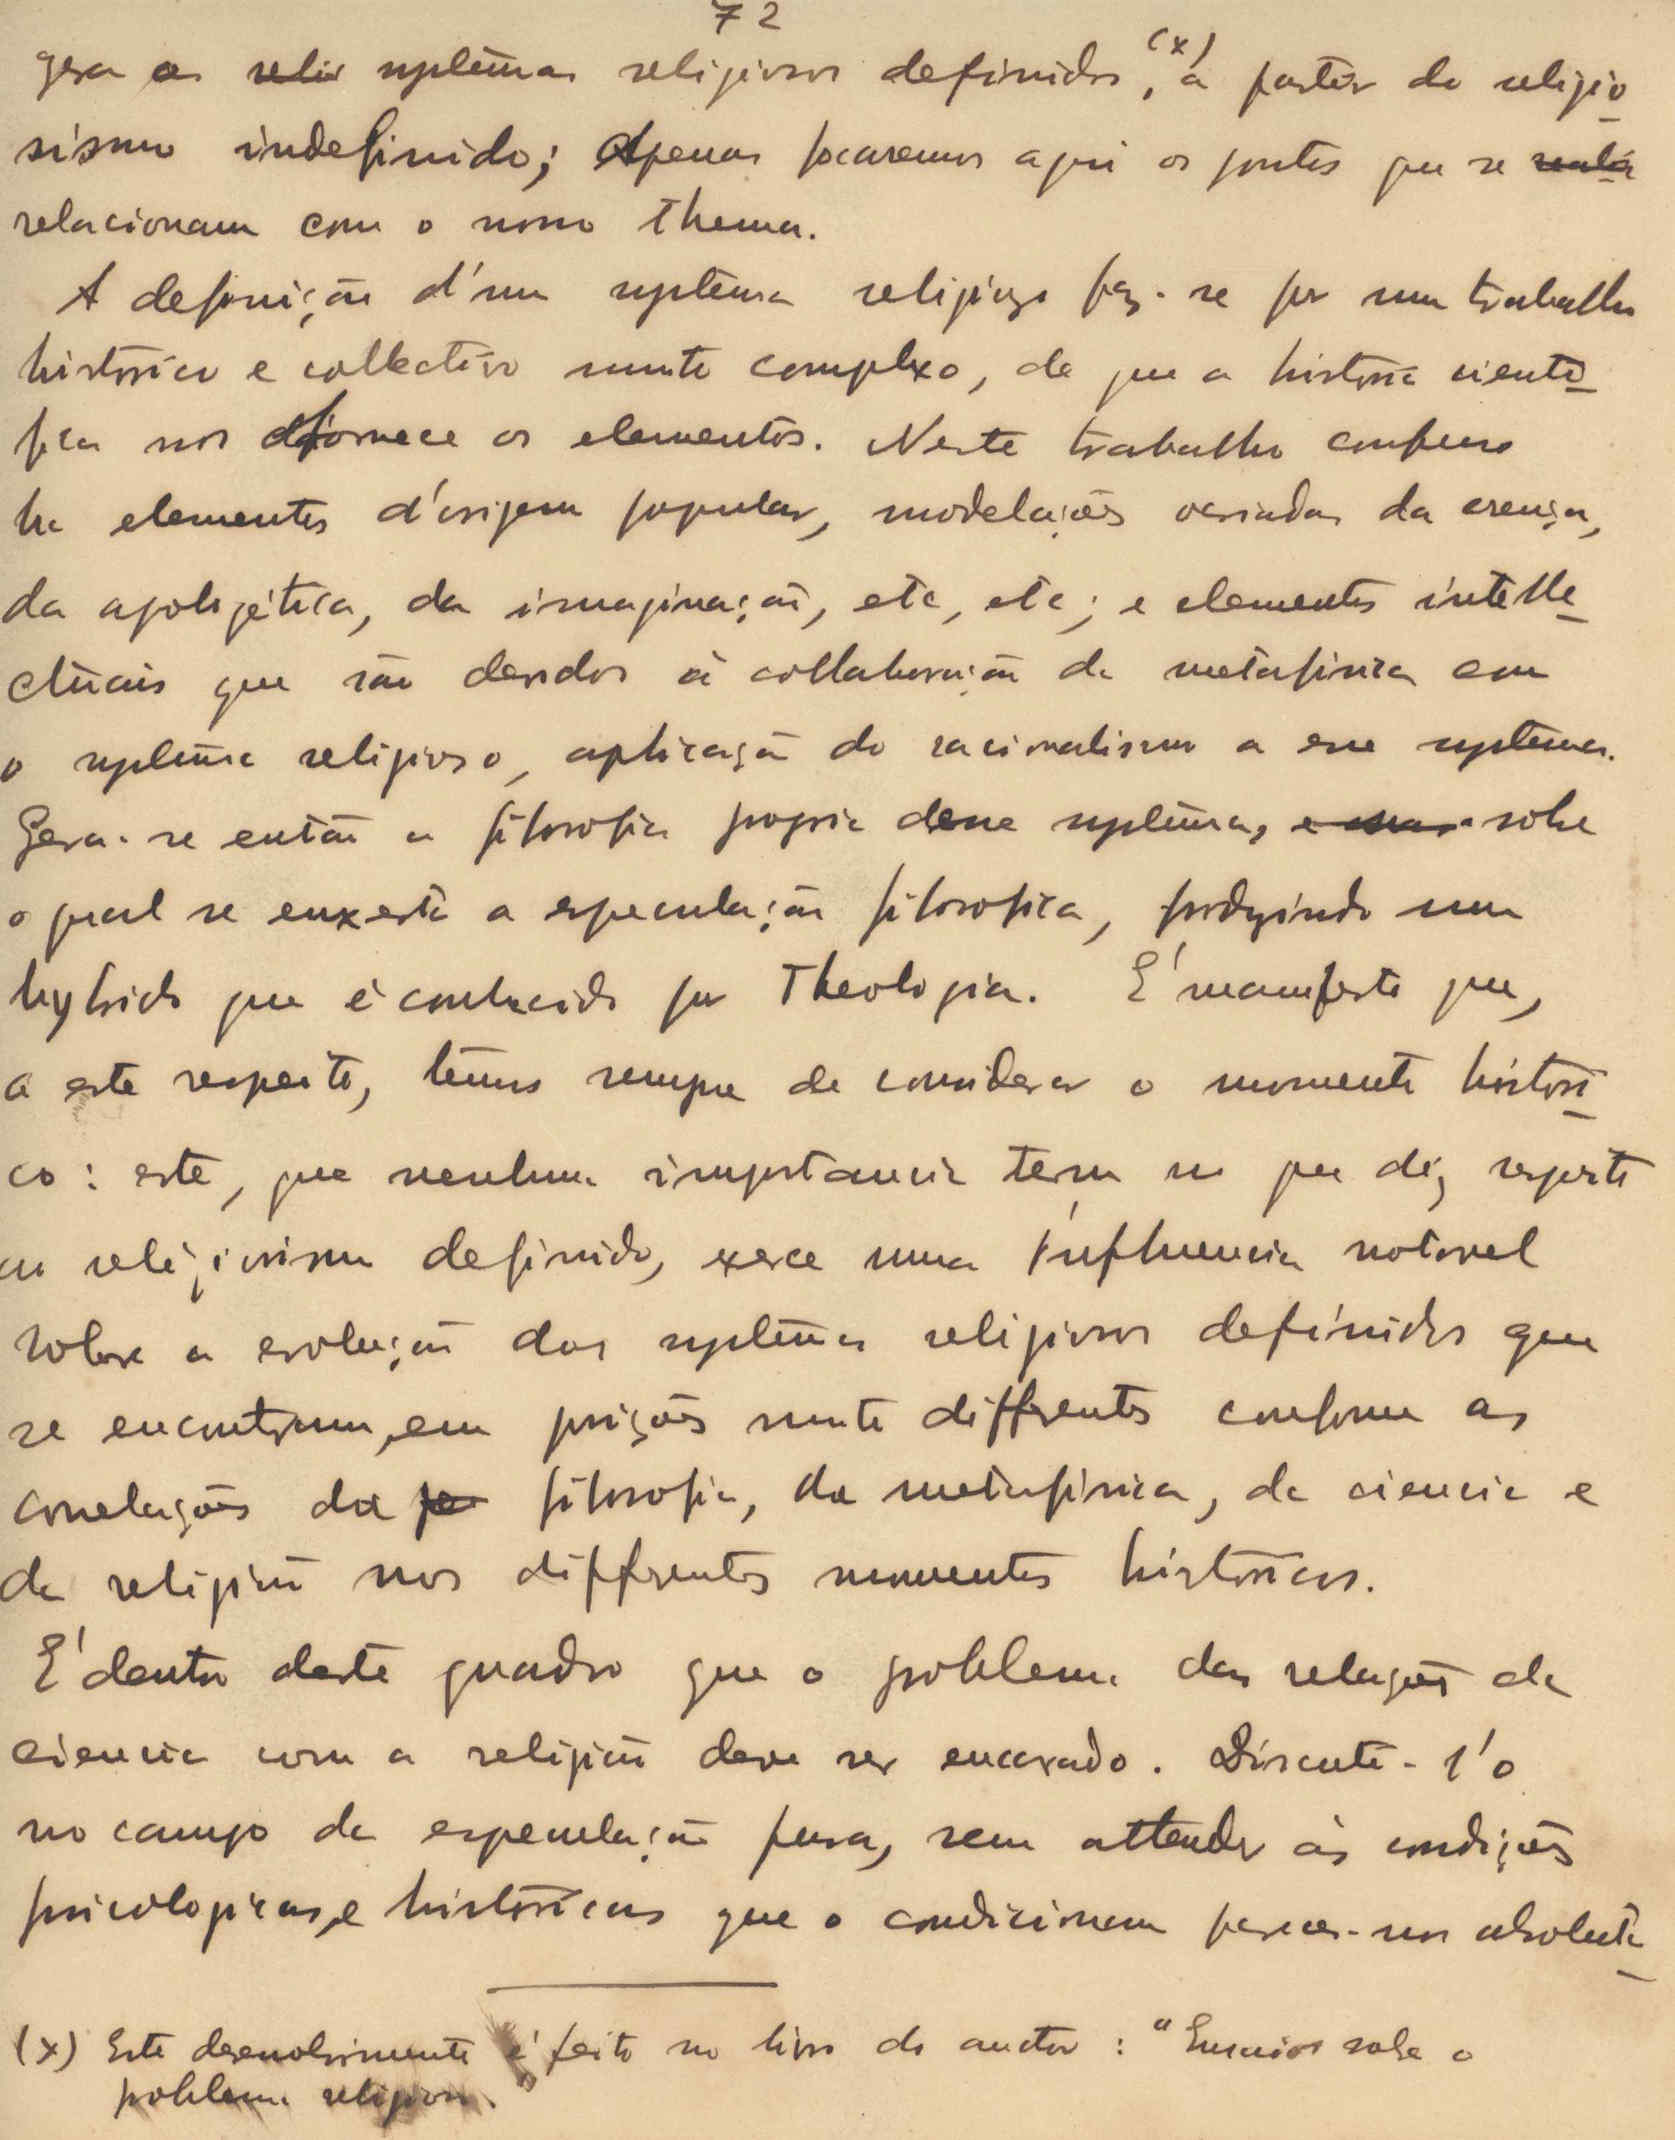 72
gera os systemas religiosos definidos,(x) a partir do religio-
sismo indefinido; Apenas focaremos aqui os pontos que se
relacionam com o nosso thema.
A definição d'um systema religioso faz-se por um trabalho
historico e collectivo muito complexo, de que a historia cienti-
fica nos fornece os elementos. Neste trabalho confuso
ha elementos d'origem popular, modelações variadas da crença,
da apologética, da imaginação, etc, etc; e elementos intelle-
ctuais que são devidos á collaboração da metafisica com
o systema religioso, aplicação do racionalismo a esse systema.
Gera-se então a filosofia propria desse systema, sobre
o qual se enxerta a especulação filosofica, produzindo um
hybrido que é conhecido por Theologia. É manifesto que,
a este respeito, temos sempre de considerar o momento histori-
co: este, que nenhuma importancia tem no que diz respeito
ao religiosismo definido, exerce uma influencia notavel
sobre a evolução dos systemas religiosos definidos que
se encontram, em posições muito differentes conforme as
correlações da filosofia, da metafisica, da ciencia e
da religião nos differentes momentos historicos.
É dentro deste quadro que o problema das relações da
ciencia com a religião deve ser encarado. Discuti-l'o
no campo da especulação pura, sem attender ás condições
psicologicas, e historicas que o condicionam parece-nos absoluta-
(x) Este desenvolvimento é feito no livro do auctor: "Ensaios sobre o
problema religioso".